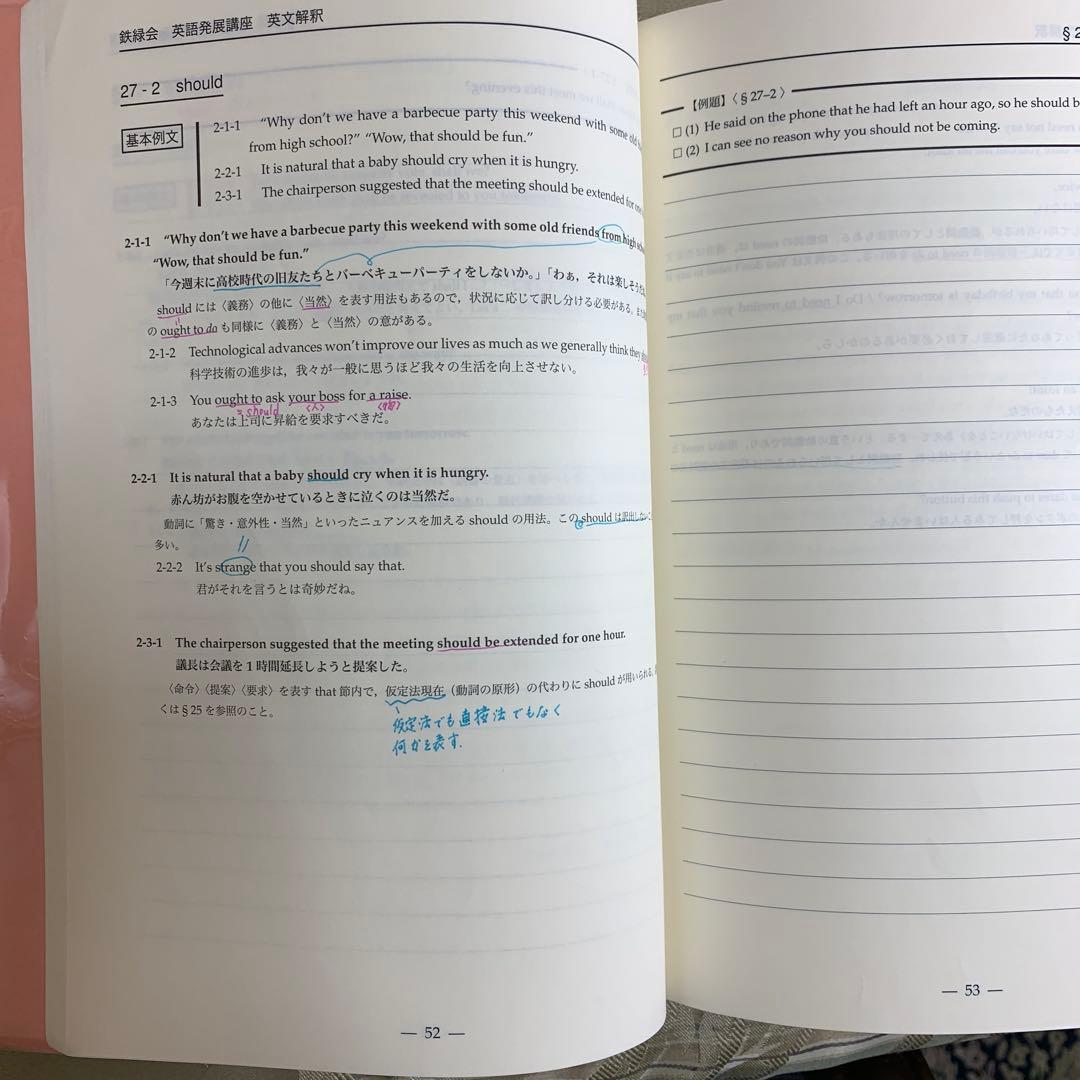 鉄緑会 英語発展講座 英文解釈
27 - 2 should
基本例文
2-1-1 “Why don't we have a barbecue party this weekend with some old
from high school?” “Wow, that should be fun.”
2-2-1 It is natural that a baby should cry when it is hungry.
2-3-1 The chairperson suggested that the meeting should be extended for
2-1-1 “Why don't we have a barbecue party this weekend with some old friends from high
“Wow, that should be fun.”
「今週末に高校時代の旧友たちとバーベキューパーティをしないか。」「わぁ，それは楽しそう
should には〈義務〉の他に〈当然〉を表す用法もあるので，状況に応じて訳し分ける必要がある。
の ought to do も同様に〈義務〉と〈当然〉の意がある。
2-1-2 Technological advances won't improve our lives as much as we generally think they
科学技術の進歩は，我々が一般に思うほど我々の生活を向上させない。
2-1-3 You ought to ask your boss for a raise.
= should 〈人〉 〈物〉
あなたは上司に昇給を要求すべきだ。
2-2-1 It is natural that a baby should cry when it is hungry.
赤ん坊がお腹を空かせているときに泣くのは当然だ。
動詞に「驚き・意外性・当然」といったニュアンスを加える should の用法。この should は訳出しない
多い。
2-2-2 It's strange that you should say that.
君がそれを言うとは奇妙だね。
2-3-1 The chairperson suggested that the meeting should be extended for one hour.
議長は会議を1時間延長しようと提案した。
〈命令〉〈提案〉〈要求〉を表す that 節内で，仮定法現在（動詞の原形）の代わりに should が用いられる。
くは§25を参照のこと。
仮定法でも直接法でもなく
何かを表す.
— 52 —
§ 2
【例題】〈§27–2〉
□ (1) He said on the phone that he had left an hour ago, so he should b
□ (2) I can see no reason why you should not be coming.
— 53 —